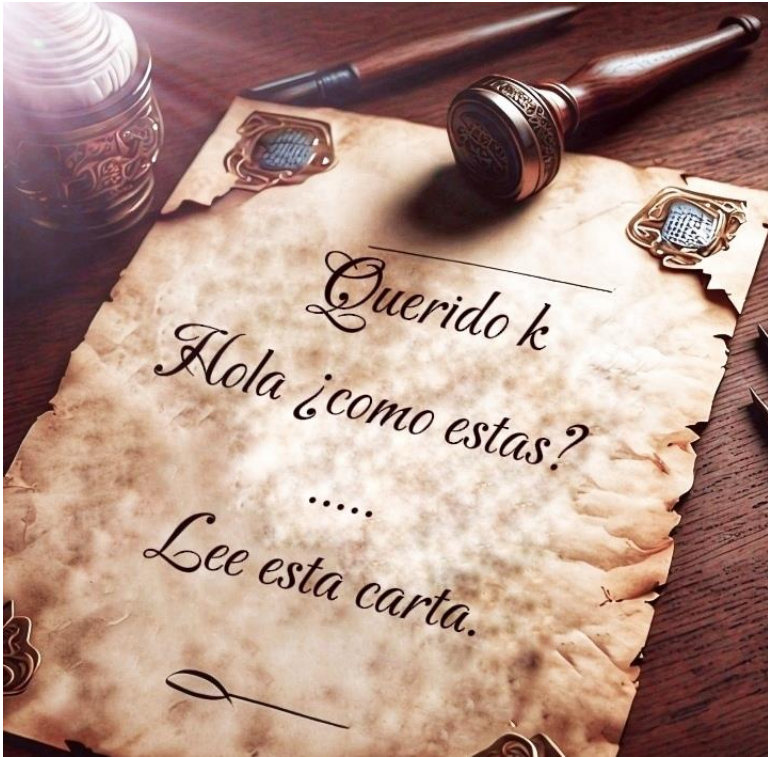 Querido k
Hola ¿como estas?
.....
Lee esta carta.